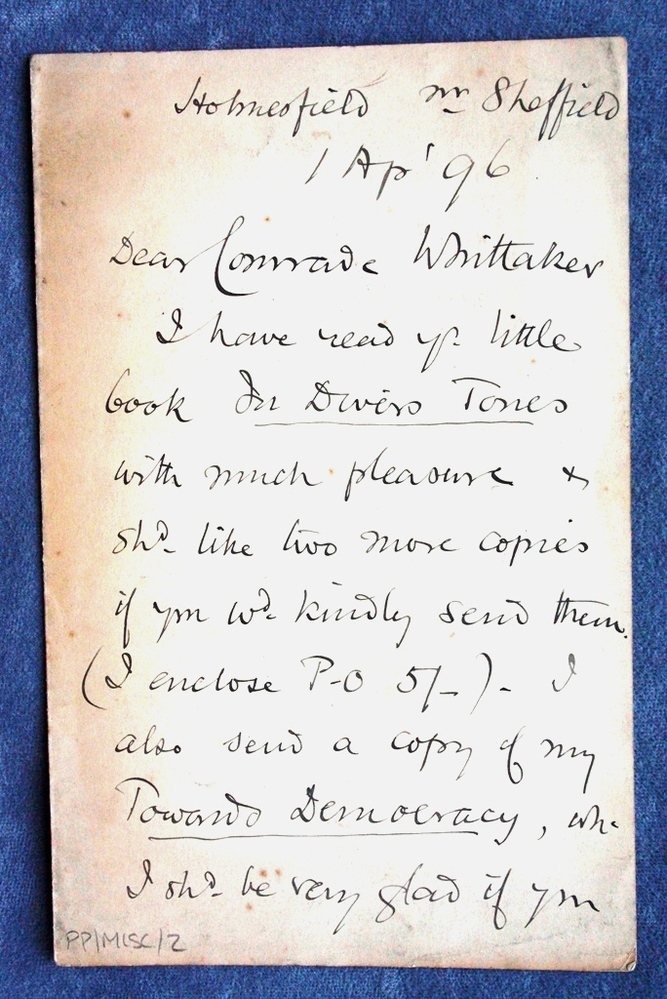 Holmesfield nr Sheffield
1 Apl 96
Dear Comrade Whittaker
I have read yr. little
book In Divers Tones
with much pleasure &
shd. like two more copies
if you wd. kindly send them.
(I enclose P-O 5/-). I
also send a copy of my
Towards Democracy, wh.
I shd. be very glad if you
PP/MISC/2